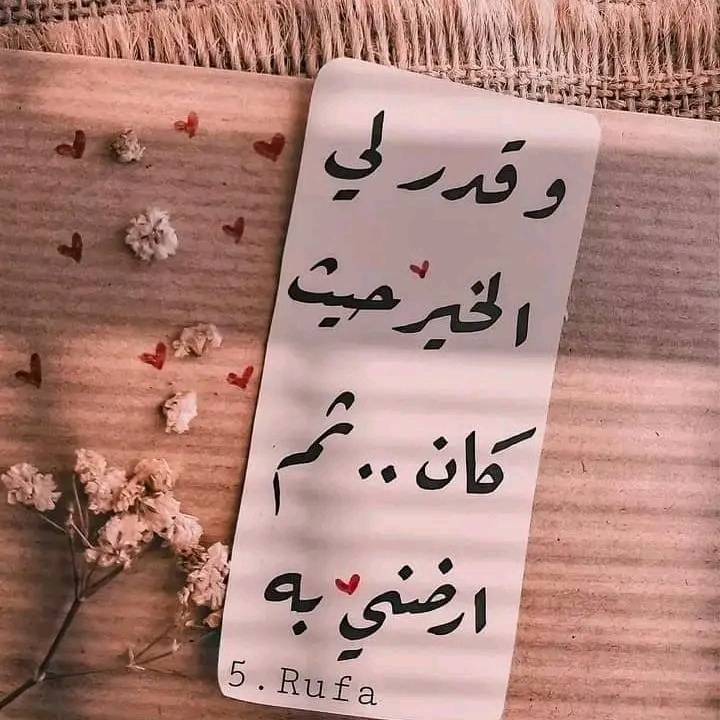 و قدر لي
الخير حيث
كان .. ثم
ارضني به
5.Rufa